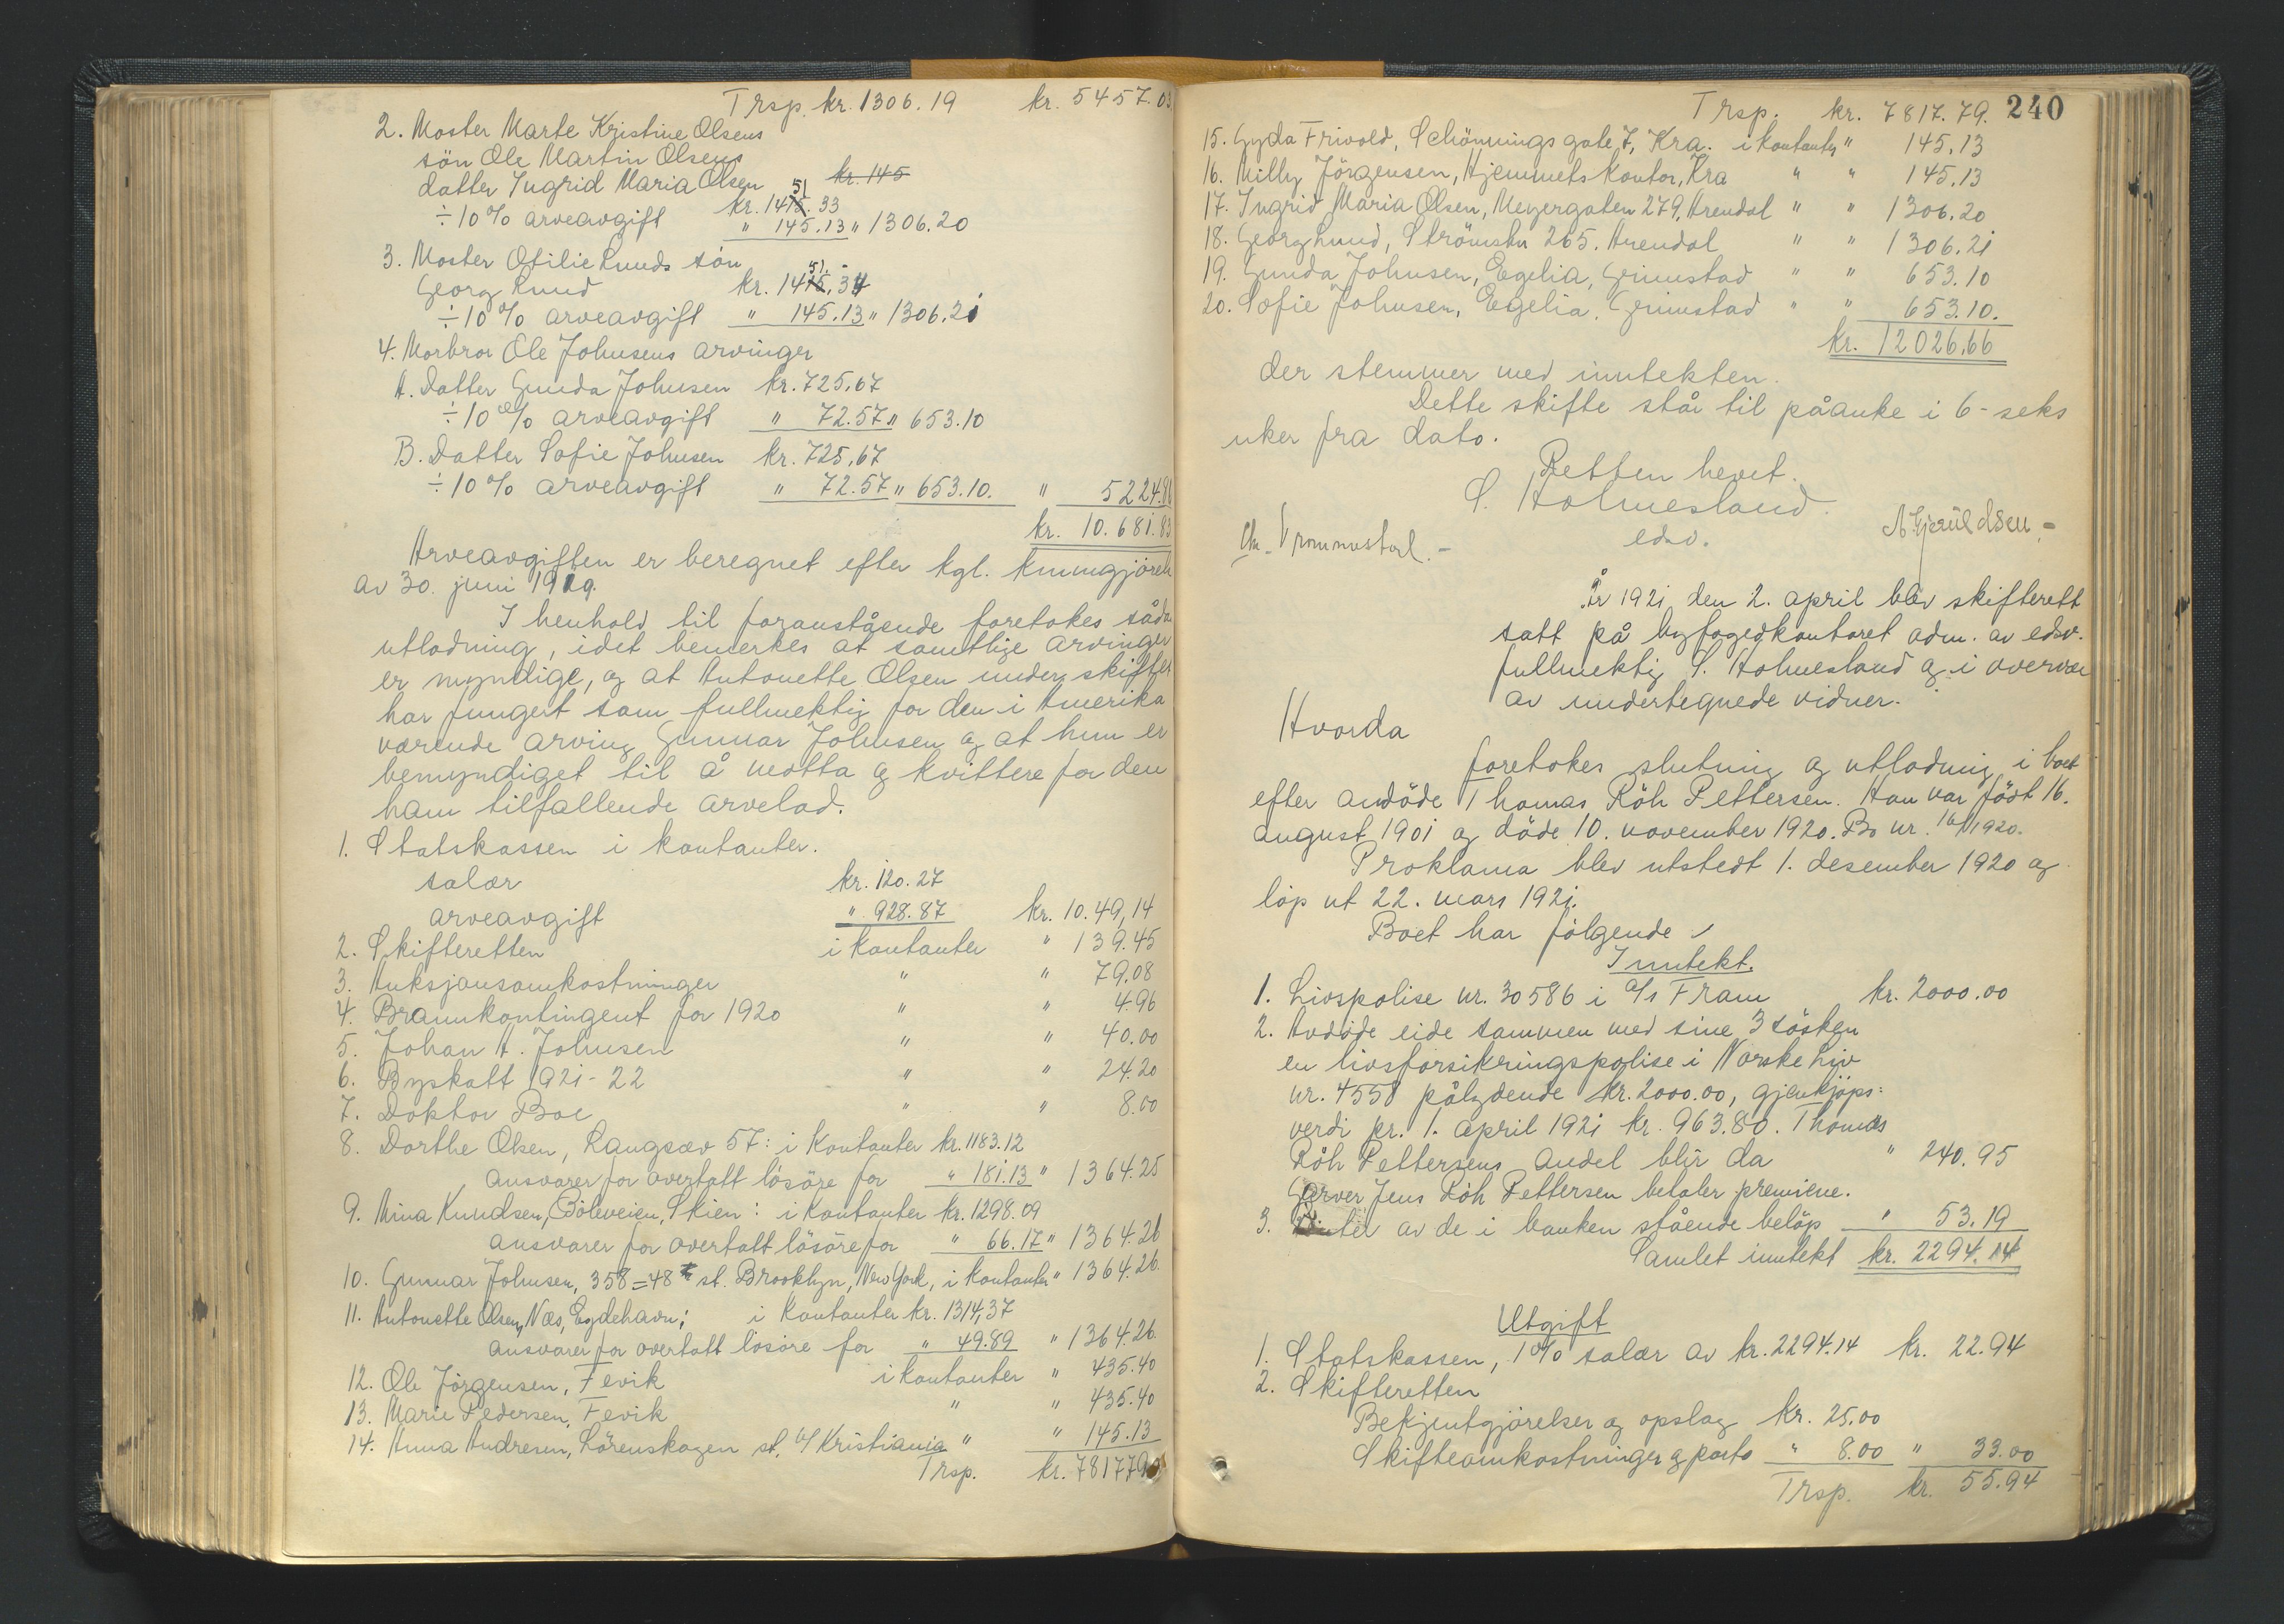 Trsp. kr. 1306.19 kr. 5457.03
2. Moster Marte Kristine Olsens
sön Ole Martin Olsens
datter Ingrid Maria Olsen kr. 145
51
÷ 10 % arveavgift kr. 1415.33
" 145.13 " 1306.20
3. Moster Otilie Lunds sön
51.
Georg Lund kr. 1415.34
÷ 10 % arveavgift " 145.13 " 1306.21
4. Morbror Ole Johnsens arvinger
A. Datter Gunda Johnsen kr. 725,67
÷ 10 % arveavgift " 72.57 " 653.10
B. Datter Sofie Johnsen kr. 725,67
÷ 10 % arveavgift " 72.57 " 653.10. " 5224.80
kr. 10.681.83
Arveavgiften er beregnet efter kgl. kunngjörels
av 30. juni 1919.
I henhold til foranstående foretokes sådan
utlodning, idet bemerkes at samtlige arvinger
er myndige, og at Antonette Olsen under skiftet
har fungert som fullmektig for den i Amerika
værende arving Gunnar Johnsen og at hun er
bemyndiget til å motta og kvittere for den
ham tilfallende arvelod.
1. Statskassen i kontanter.
salær kr. 120.27
arveavgift " 928.87 kr. 10.49,14
2. Skifteretten i kontanter " 139.45
3. Auksjonsomkostninger " " 79.08
4. Brannkontingent for 1920 " " 4.96
5. Johan A. Johnsen " " 40.00
6. Byskatt 1921-22 " " 24.20
7. Doktor Boe " " 8.00
8. Dorthe Olsen, Langsæv 57: i kontanter kr. 1183.12
ansvarer for overtatt lösöre for " 181.13 " 1364.25
9. Mina Knudsen, Böleveien, Skien: i kontanter kr. 1298.09
ansvarer for overtatt lösöre for " 66.17 " 1364.26
10. Gunnar Johnsen, 358=48 st. Brooklyn, New York, i kontanter " 1364.26.
11. Antonette Olsen, Næs, Eydehavn; i kontanter kr. 1314,37
ansvarer for overtatt lösöre for " 49.89 " 1364.26
12. Ole Jörgensen, Fevik i kontanter " 435.40
13. Marie Pedersen, Fevik " " 435.40
14. Anna Andresen, Lörenskogen st. v/ Kristiania " " 145.13
Trsp. kr. 7817.79
Trsp. kr. 7817.79. 240
15. Gyda Frivold, Schönnings gate 7, Kra. i kontanter " 145.13
16. Milly Jörgensen, Hjemmets Kontor, Kra " " 145.13
17. Ingrid Maria Olsen, Meyergaten 279, Arendal " " 1306.20
18. Georg Lund, Strömsbu 265. Arendal " " 1306.21
19. Gunda Johnsen, Egelia, Grimstad " " 653.10
20. Sofie Johnsen, Egelia, Grimstad " " 653.10.
kr. 12026,66
der stemmer med inntekten.
Dette skifte står til påanke i 6-seks
uker fra dato.
Retten hevet.
S. Holmesland.
edsv.
Chr. Vrommestad.- A. Gjeruldsen.-
År 1921 den 2. april blev skifterett
satt på byfogedkontoret adm. av edsv.
fullmektig S. Holmesland og i overvær
av undertegnede vidner.
Hvorda
foretokes slutning og utlodning i boet
efter avdöde Thomas Röh Pettersen. Han var födt 16.
august 1901 og döde 10. november 1920. Bo nr. 16/1920.
Proklama blev utstedt 1. desember 1920 og
löp ut 22. mars 1921.
Boet har fölgende
Inntekt.
1. Livspolise nr. 30586 i A/S Fram kr. 2000.00
2. Avdöde eide sammen med sine 3 sösken
en livsforsikringspolise i Norske Liv
nr. 4558 pålydende kr. 2000.00, gjenkjöps=
verdi pr. 1. april 1921 kr. 963.80. Thomas
Röh Pettersens andel blir da " 240.95
Garver Jens Röh Pettersen betaler premiene.
3. av de i banken stående belöp " 53.19
Samlet inntekt kr. 2294.14
Utgift
1. Statskassen, 1 % salær av kr. 2294.14 kr. 22.94
2. Skifteretten
Bekjentgjörelser og opslag kr. 25.00
Skifteomkostninger og porto " 8.00 " 33.00
Trsp. kr. 55.94